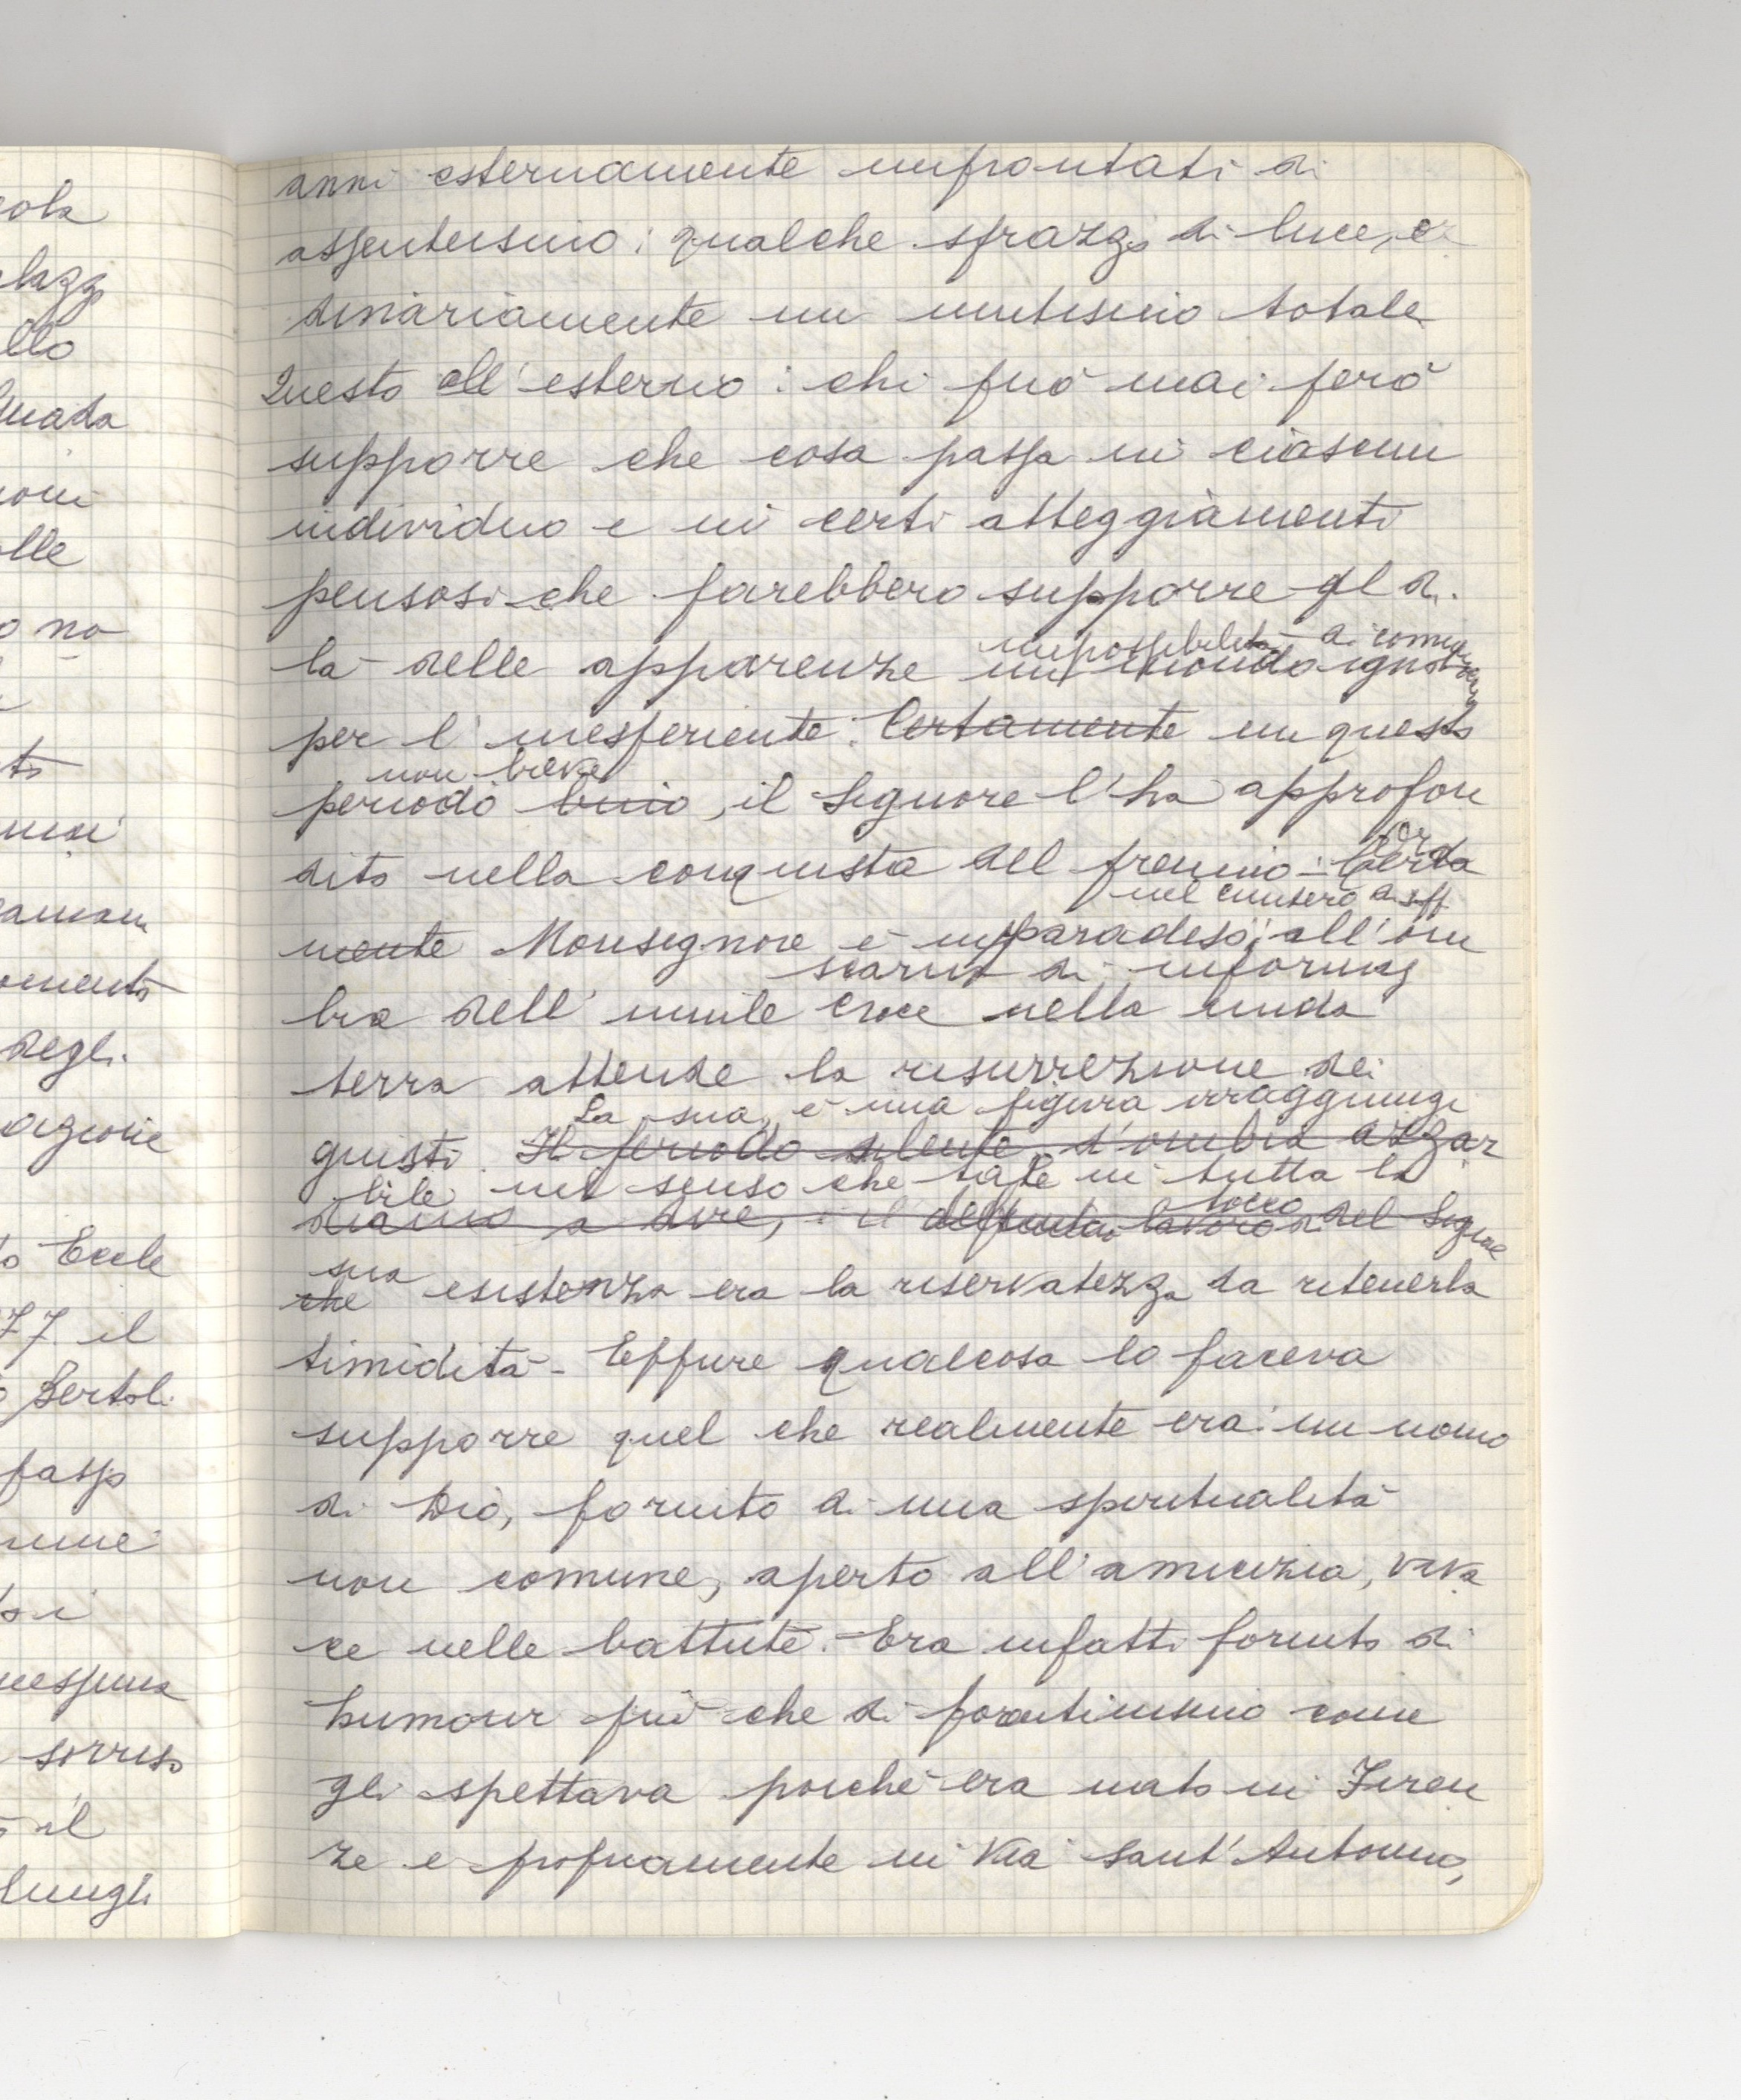 cola
lazz
ello
muada
ioni
olle
o no
to
mai
amen
omento
degli
agione
o Eccle
77. il
o Bertol.
passo
to i
sorriso
il
lungh
anni esternamente improntati di
assenteismo: qualche sprazzo di luce, or
dinariamente un mutismo totale
Questo all'esterno: chi può mai però
supporre che cosa passa in ciascun
individuo e in certi atteggiamenti
pensosi che farebbero supporre al di
impossibilità di comu
là delle apparenze un mondo ignoto
per l'inesperiente. Certamente in questo
non breve
periodo buio, il Signore l'ha approfon
dito nella conquista del premio: Certa
Or
nel cimitero di
mente Monsignore è in paradiso; all'om
scarno di
bra dell'umile croce nella nuda
terra attende la risurrezione dei
La sua, è una figura irraggiungi
giusti. Il periodo silente, d'ombra azzar
bile nel senso che tale in tutta la
diamo a dire, il lavoro del Signore
tocco
sua
che esistenza era la riservatezza da ritenerla
timidità - Eppure qualcosa lo faceva
supporre quel che realmente era: un uomo
di Dio, fornito di una spiritualità
non comune, aperto all'amicizia, viva
ce nelle battute. Era infatti fornito di
humour più che di fiorentinismo come
gli spettava poiché era nato in Firen
ze e propriamente in Via Sant'Antonino,